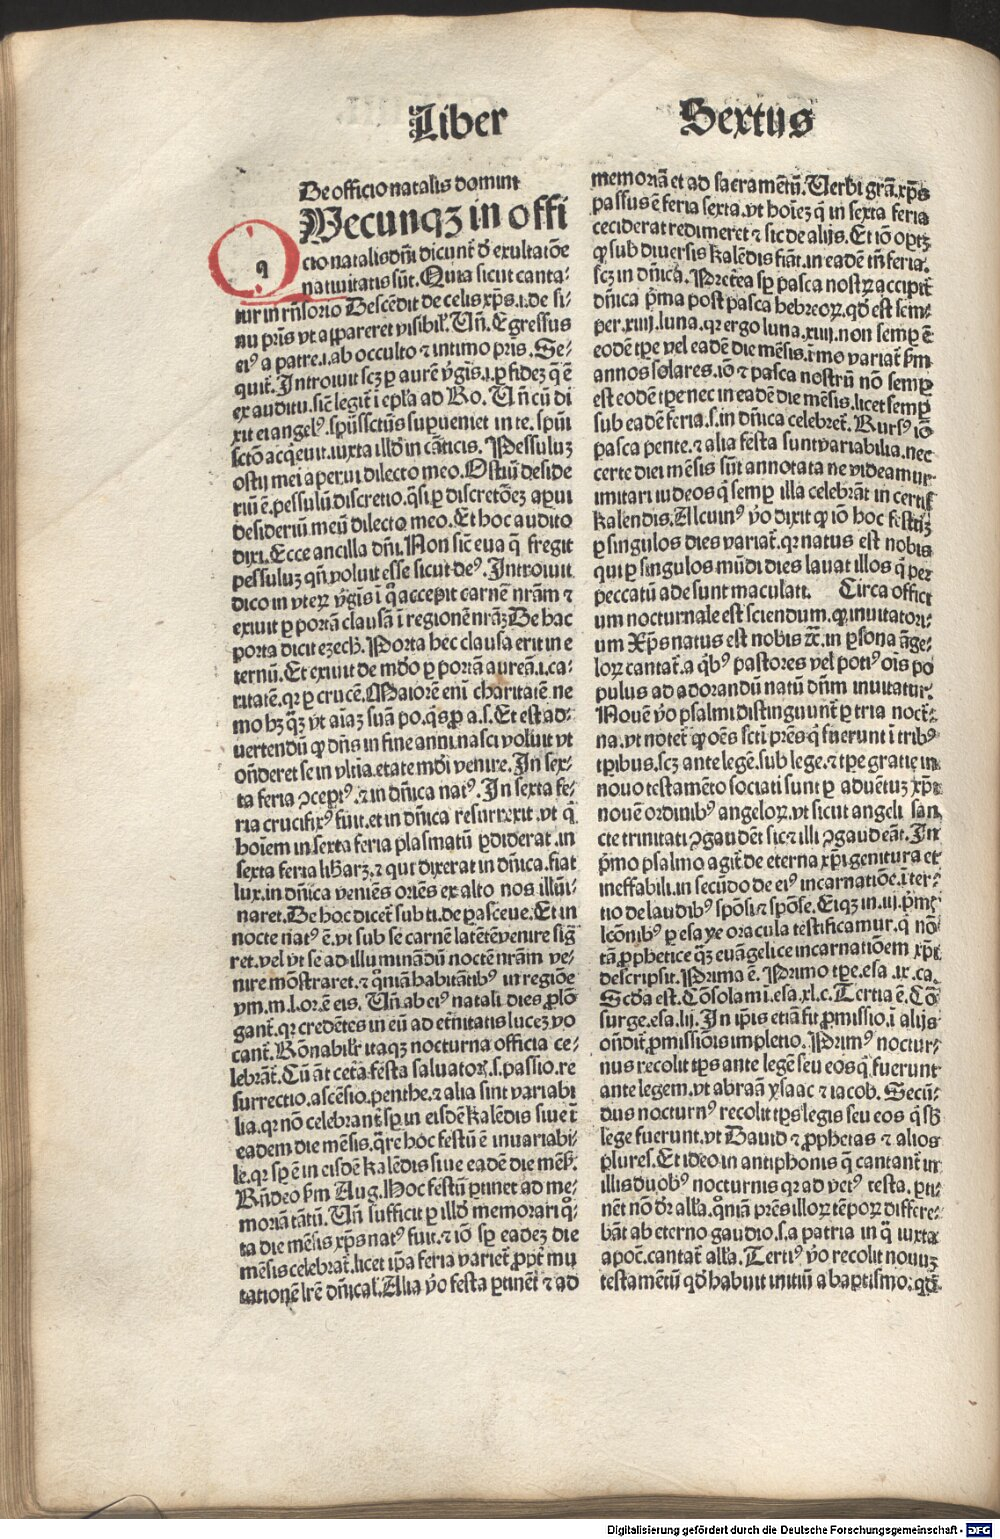 Liber Sextus
De officio natalis domini
Uecunqꝫ in offi
q
cio natalis dn̄i dicunt̄ d̄ exultatōe
natiuitatis sūt. Quia sicut canta-
tur in rn̄sorio Descēdit de celis xp̄s .i. de si-
nu pr̄is vt appareret visibilr̄. Vn̄. Egressus
eiꝰ a patre .i. ab occulto ⁊ intimo pr̄is. Se-
quit̄. Introiuit scꝫ ꝑ aurē v̄gīs .i. ꝑ fideꝫ q̄ ē
ex auditu. sic̄ legit̄ ī epl̄a ad Ro. Vn̄ cū di
xit ei angelꝰ. spūssctūs supueniet in te. spūi
sctō acq̄euit. iuxta illd̄ in cāticis. Pessuluꝫ
ostij mei aperui dilecto meo. Ostiū deside
riū ē. pessulū discretio. q̄si ꝑ discretōeꝫ aꝑui
desideriū meū dilecto meo. Et hoc audito
dixi. Ecce ancilla dn̄i. Non sic̄ eua q̄ fregit
pessuluꝫ qn̄ voluit esse sicut deꝰ. Introiuit
dico in vteꝝ v̄gīs ī q̊ accepit carnē nr̄am ⁊
exiuit ꝑ portā clausā ī regionē nr̄aꝫ De hac
porta dicit ezech. Porta hec clausa erit in e
ternū. Et exiuit de mūdo ꝑ portā aureā .i. ca-
ritatē. qr ꝑ crucē. Maiorē eni charitatē ne
mo hꝫ q̄ꝫ vt aīaꝫ suā po. q̄s ꝓ a. s. Et est ad-
uertendū ꝙ dn̄s in fine anni. nasci voluit vt
on̄deret se in vltīa. etate mūdi venire. In sex-
ta feria ꝯceptꝰ. ⁊ in dn̄ica natꝰ. In sexta fe-
ria crucifixꝰ fuit. et in dn̄ica resurrexit. vt q̄
hoīem in sexta feria plasmatū ꝑdiderat. in
sexta feria libaꝝ. ⁊ qui dixerat in dn̄ica. fiat
lux. in dn̄ica veniēs oriēs ex alto nos illūi-
naret. De hoc dicet̄ sub ti. de parasceue. Et in
nocte natꝰ ē. vt sub se carnē latētē venire sig̅
ret. vel vt se ad illuminādū noctē nr̄am ve-
nire mōstraret. ⁊ qm̄niā habitātibꝰ in regiōe
vm. m. l. or. ē eis. Vn̄ ab eiꝰ natali dies ꝓlō
gant̄. qr credētes in eū ad et̄nitatis luceꝫ vo
cant̄. Rōnabilr̄ itaqꝫ nocturna officia ce-
lebrāt̄. Cū āt cet̄a festa saluatorꝭ. s. passio. re
surrectio. ascēsio. penthe. ⁊ alia sint variabi
lia. qr nō celebrant̄ sꝑ in eisdē kalēdis siue ī
eadem die mēsis. q̄re hoc festū ē inuariabi-
le. qr sꝑ ē in eisdē kalēdis siue eadē die mēs̄.
Rn̄deo s̄m Aug. Hoc festū ꝑtinet ad me-
moriā tātū. Vn̄ sufficit ꝑ illd̄ memorari q̊-
ta die mēsis xp̄s natꝰ fuit. ⁊ iō sꝑ eadeꝫ die
mēsis celebrat̄. licet ip̄a feria variet̄ ꝓpt̄ mu
tationē lr̄e dn̄ical. Alia v̄o festa ꝑtinēt ⁊ ad
memoriā et ad sacramētū. Uerbi grā. xp̄s
passus ē feria sexta. vt hoīeꝫ q̄ in sexta feria
ceciderat redimeret ⁊ sic de alijs. Et iō oꝑtꝫ
ꝙ sub diuersis kalēdis fiāt. in eadē tn̄ feria.
scꝫ in dn̄ica. Pret̄ea sꝑ pasca nostꝝ accipit̄
dn̄ica p̄ma post pasca hebreoꝝ. qd̄ est sem-
per .xiiij. luna. qr ergo luna .xiiij. non semꝑ ē
eodē tp̄e vel eadē die mēsis. īmo variat̄ s̄m
annos solares. iō ⁊ pasca nostrū nō semꝑ
est eodē tp̄e nec in eadē die mēsis. licet semꝑ
sub eadē feria. s. in dn̄ica celebret̄. Rursꝰ iō
pasca pente. ⁊ alia festa sunt variabilia. nec
certe diei mēsis sūt annotata ne videamur
imitari iudeos q̄ semꝑ illa celebrāt in certis
kalendis. Alcuinꝰ v̄o dixit ꝙ iō hoc festuꝫ
ꝑ singulos dies variat̄. qr natus est nobis
qui ꝑ singulos mūdi dies lauat illos q̄ per
peccatū ade sunt maculati. Circa offici
um nocturnale est sciendum. ꝙ inuitatori-
um Xp̄s natus est nobis ⁊c̄. in ꝑsona āge-
loꝝ cantat̄. a q̄bꝰ pastores vel potiꝰ oīs po
pulus ad adorandū natū dn̄m inuitatur.
Nouē v̄o psalmi distinguunt̄ ꝑ tria noct̄-
na. vt notet̄ ꝙ oēs scti prēs q̄ fuerunt ī tribꝰ
tp̄ibus. scꝫ ante legē. sub lege. ⁊ tp̄e gratie in
nouo testamēto sociati sunt ꝑ aduētuꝫ xp̄i
nouē ordinibꝰ angeloꝝ. vt sicut angeli san
cte trinitati ꝯgaudēt sic ⁊ illi ꝯgaudeāt. In
p̄mo psalmo agit̄ de eterna xp̄i genitura et
ineffabili. in secūdo de eiꝰ incarnatiōe. ī ter-
tio de laudibꝰ spōsi ⁊ spōse. Eiqꝫ in .iij. p̄mꝭ
lcōnibꝰ ꝑ esaye oracula testificamur. q̄ nō
tā ꝓphetice q̄ꝫ euāgelice incarnatiōem xp̄i
descripsit. Prima ē. Primo tp̄e. esa .ix. ca.
Scd̄a est. Cōsolami ī. esa. xl. c. Tertia ē. Cō
surge. esa. lij. In ip̄is etiā fit ꝓmissio. ī alijs
on̄dit̄ ꝓmissiōis impletio. Primꝰ noctur-
nus recolit tp̄s ante legē seu eos q̄ fuerunt
ante legem. vt abraā ysaac ⁊ iacob. Secū-
dus nocturnꝰ recolit tp̄s legis seu eos q̄ sb̄
lege fuerunt. vt Dauid ⁊ ꝓphetas ⁊ alios
plures. Et ideo in antiphonis q̄ cantant̄ in
illis duobꝰ nocturnis qr ad vetꝰ testa. ꝑti-
nēt nō dr̄ all̄a. qm̄niā prēs illoꝝ tēpoꝝ differe-
bāt ab eterno gaudio. s. a patria in q̄ iuxta
apoc̄. cantat̄ all̄a. Tertiꝰ v̄o recolit nouuꝫ
testamētū qd̄ habuit initiū a baptismo. qd̄